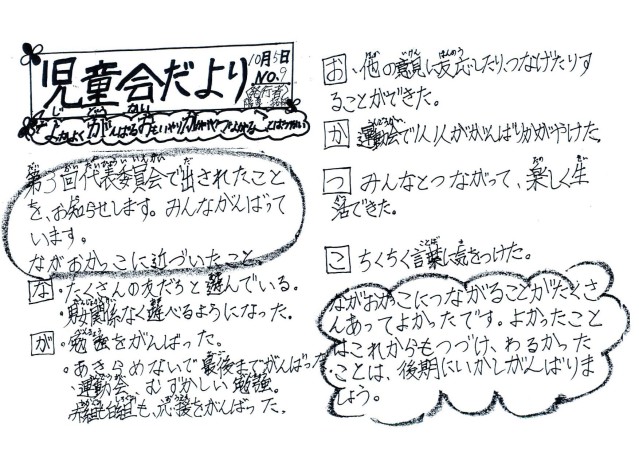 児童会だより
10月5日
NO.9
発行者
第3回代表委員会で出されたこと
を、お知らせします。みんながんばって
います。
ながおかっこに近づいたこと。
な ・たくさんの友だちと遊んでいる。
・男女関係なく遊べるようになった。
が ・勉強をがんばった。
・あきらめないで最後までがんばった
運動会、むずかしい勉強。
・赤組白組も、応援をがんばった。
お ・他の意見に反応したり、つなげたりす
ることができた。
か 運動会で1人1人ががんばりかがやけた。
つ みんなとつながって、楽しく生
活できた。
こ ちくちく言葉に気をつけた。
ながおかっこにつながることがたくさ
んあってよかったです。よかったこと
はこれからもつづけ、わるかった
ことは、後期にいかしがんばりま
しょう。